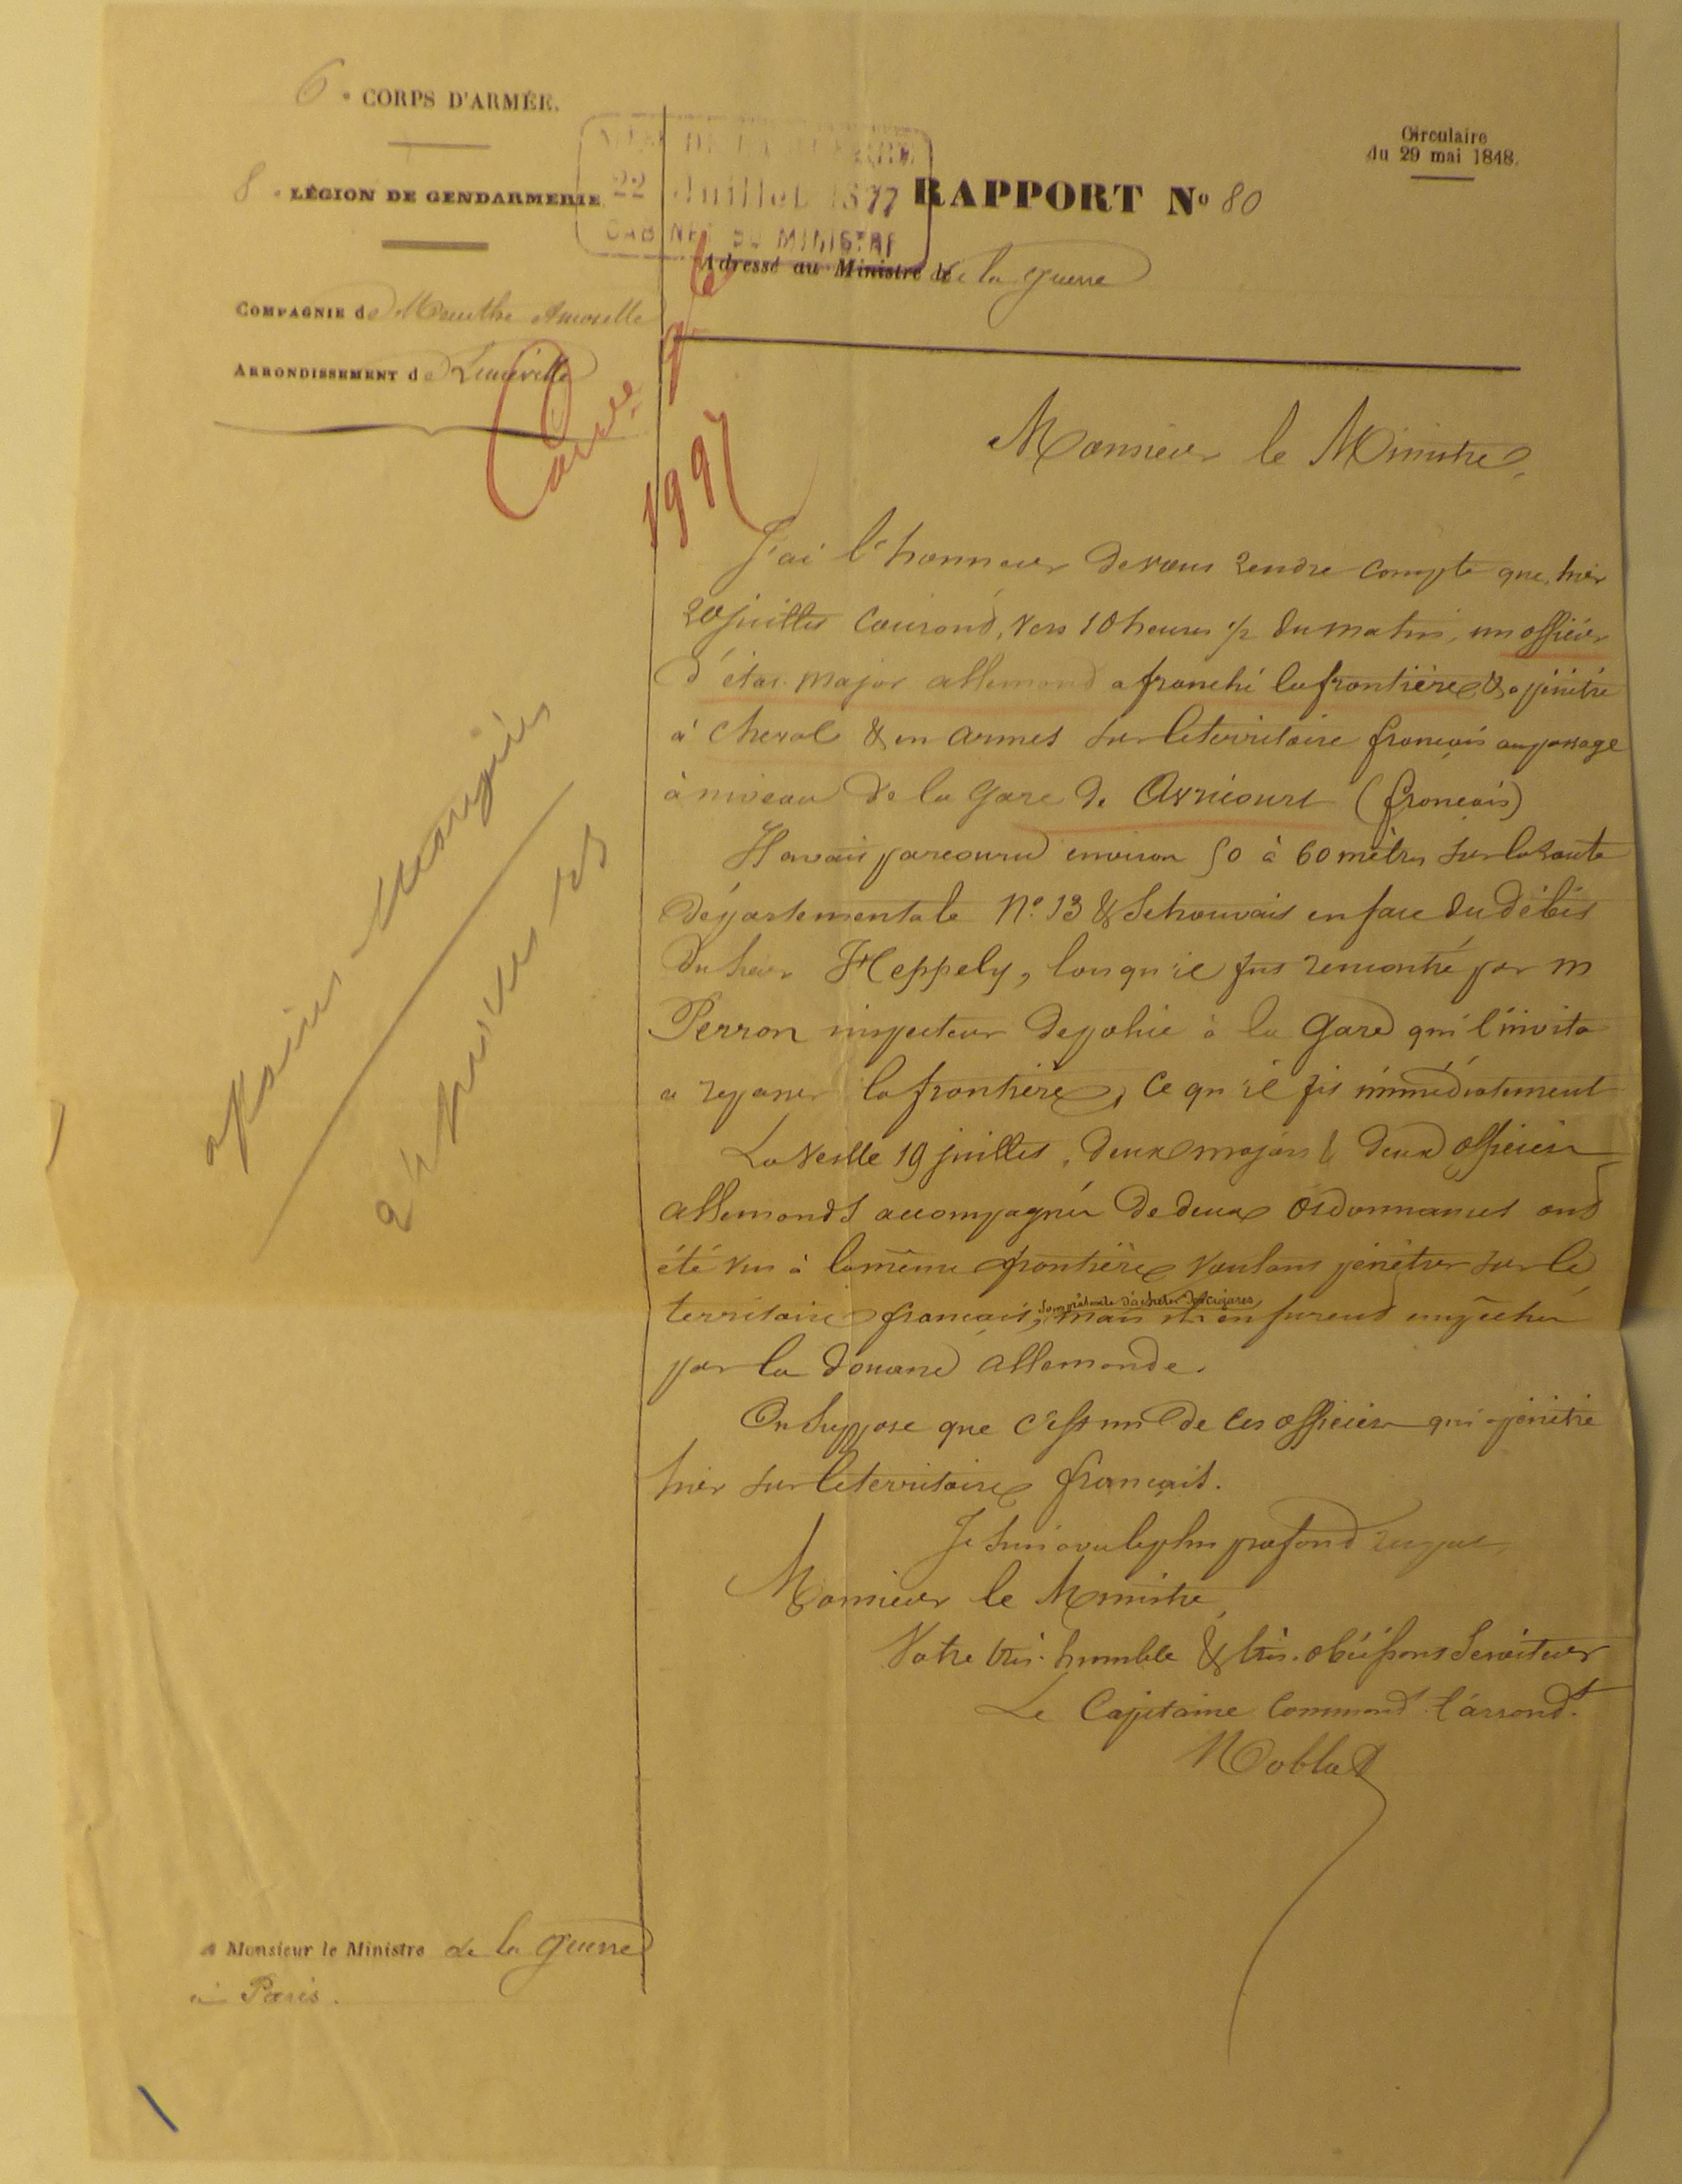 6e CORPS D'ARMÉE.
8e LÉGION DE GENDARMERIE
COMPAGNIE de Meurthe & Moselle
ARRONDISSEMENT de Lunéville
22 Juillet 1877
CABINET DU MINISTRE
Circulaire
du 29 mai 1848.
RAPPORT No 80
Adressé au Ministre de la guerre
1997
Monsieur le Ministre,
J'ai l'honneur de vous rendre compte que, hier
20 juillet courant, vers 10 heures ½ du matin, un officier
d'état-major allemand a franchi la frontière & a pénétré
à cheval & en armes sur le territoire français au passage
à niveau de la gare de Avricourt (français)
Il avait parcouru environ 50 à 60 mètres sur la route
départementale No 13 & se trouvait en face du débit
du sieur Heppely, lorsqu'il fut remontré par m
Perron inspecteur de police à la gare qui l'invita
a repasser la frontière, ce qu'il fit immédiatement
La veille 19 juillet, deux majors & deux officiers
allemands accompagnés de deux ordonnances ont
été vus à la même frontière voulant pénétrer sur le
territoire français, sous prétexte d'acheter des cigares, mais ils en furent empêchés
par la douane allemande.
On suppose que c'est un de ces officiers qui a pénétré
hier sur le territoire français.
Je suis avec le plus profond respect,
Monsieur le Ministre,
Votre très-humble & très-obéissant serviteur
Le Capitaine Commandt l'arrondt
Noblat
affaires étrangères
à Monsieur le Ministre de la guerre
à Paris.